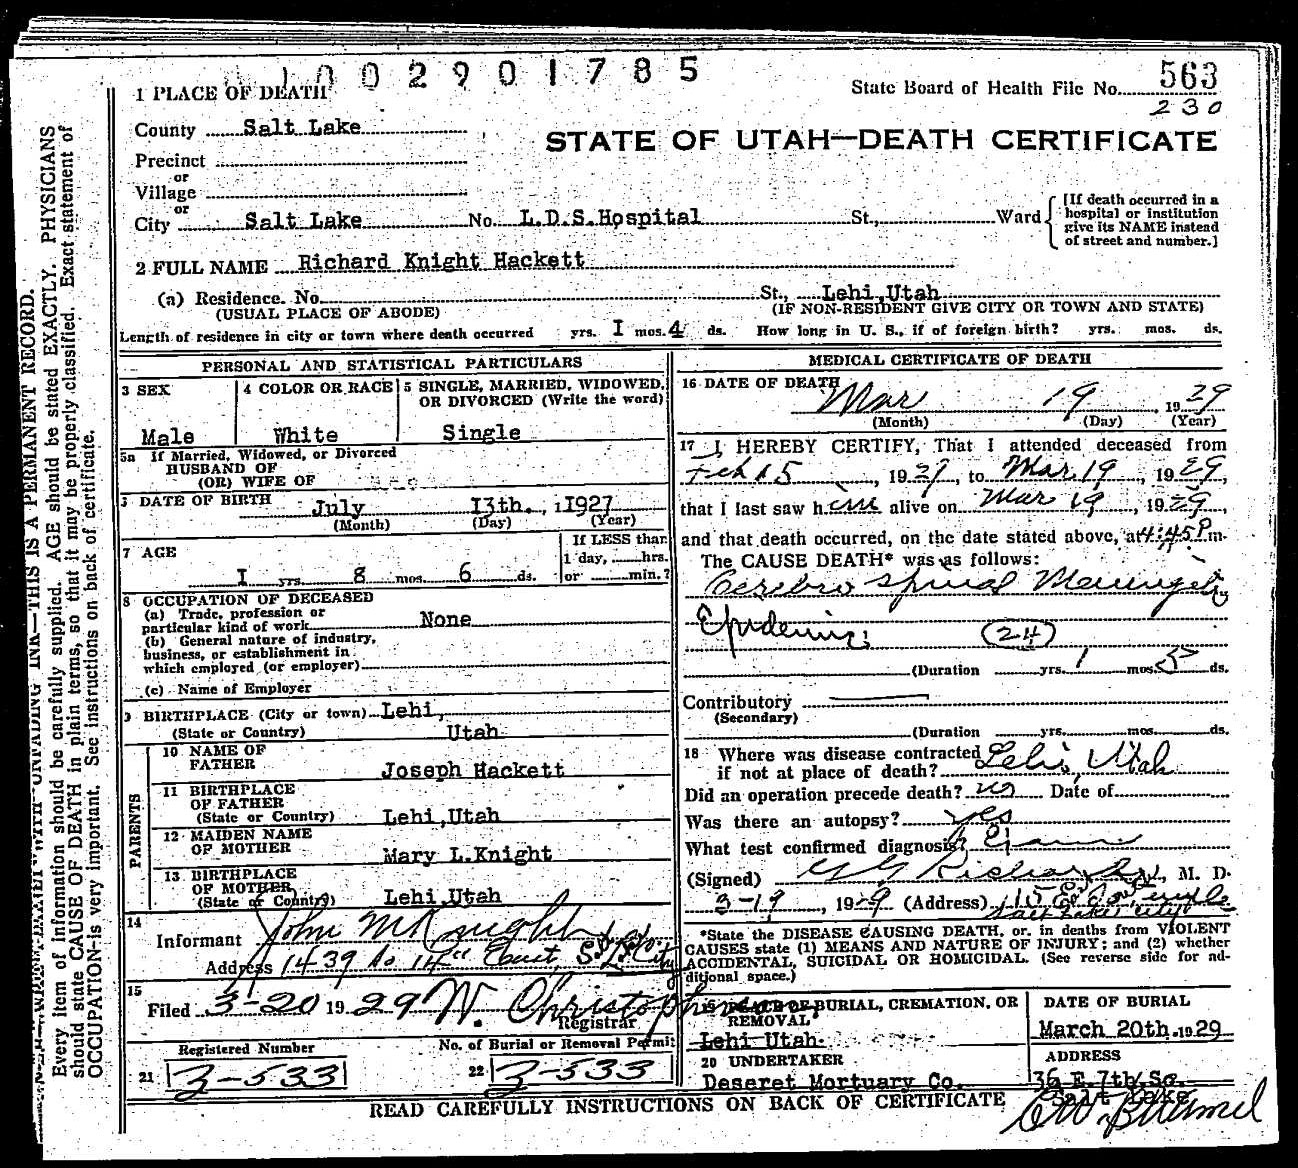 1 0 0 2 9 0 1 7 8 5
State Board of Health File No. 563
230
1 PLACE OF DEATH
County Salt Lake
STATE OF UTAH—DEATH CERTIFICATE
Precinct
or
Village
or
City Salt Lake No. L.D.S.Hospital St., Ward
[If death occurred in a
hospital or institution
give its NAME instead
of street and number.]
2 FULL NAME Richard Knight Hackett
(a) Residence. No. St., Lehi,Utah
(USUAL PLACE OF ABODE) (IF NON-RESIDENT GIVE CITY OR TOWN AND STATE)
Length of residence in city or town where death occurred yrs. I mos. 4 ds. How long in U. S., if of foreign birth? yrs. mos. ds.
PERSONAL AND STATISTICAL PARTICULARS
3 SEX
Male
4 COLOR OR RACE
White
5 SINGLE, MARRIED, WIDOWED,
OR DIVORCED (Write the word)
Single
5a If Married, Widowed, or Divorced
HUSBAND OF
(OR) WIFE OF
DATE OF BIRTH July 13th., 1927
(Month) (Day) (Year)
7 AGE
I yrs. 8 mos. 6 ds.
If LESS than
1 day, hrs.
or min.?
8 OCCUPATION OF DECEASED
(a) Trade, profession or
particular kind of work None
(b) General nature of industry,
business, or establishment in
which employed (or employer)
(c) Name of Employer
9 BIRTHPLACE (City or town) Lehi,
(State or Country) Utah
PARENTS
10 NAME OF
FATHER Joseph Hackett
11 BIRTHPLACE
OF FATHER
(State or Country) Lehi,Utah
12 MAIDEN NAME
OF MOTHER Mary L.Knight
13 BIRTHPLACE
OF MOTHER
(State or Country) Lehi,Utah
14
Informant John McKnight
Address 1439 So 14th Court, S. L. City
15
Filed 3-20 1929 W. Christopherson
Registrar
Registered Number No. of Burial or Removal Permit
21 3-533 22 3-533
MEDICAL CERTIFICATE OF DEATH
16 DATE OF DEATH
Mar 19, 1929
(Month) (Day) (Year)
17 I HEREBY CERTIFY, That I attended deceased from
Feb 15, 1929, to Mar 19, 1929,
that I last saw him alive on Mar 19, 1929,
and that death occurred, on the date stated above, at 4:45 P m.
The CAUSE DEATH* was as follows:
Cerebro Spinal Meningitis
Epidemic (24)
(Duration yrs. 1 mos. 5 ds.
Contributory
(Secondary)
(Duration yrs. mos. ds.
18 Where was disease contracted
if not at place of death? Lehi, Utah
Did an operation precede death? no Date of
Was there an autopsy? yes
What test confirmed diagnosis?
(Signed) G G Richards, M. D.
3-19, 1929 (Address)
Salt Lake City
*State the DISEASE CAUSING DEATH, or, in deaths from VIOLENT
CAUSES state (1) MEANS AND NATURE OF INJURY; and (2) whether
ACCIDENTAL, SUICIDAL OR HOMICIDAL. (See reverse side for ad-
ditional space.)
19 PLACE OF BURIAL, CREMATION, OR
REMOVAL
Lehi Utah.
DATE OF BURIAL
March 20th. 1929
20 UNDERTAKER
Deseret Mortuary Co.
ADDRESS
36 E.7th.So.
Salt Lake
READ CAREFULLY INSTRUCTIONS ON BACK OF CERTIFICATE
THIS IS A PERMANENT RECORD.
Every item of information should be carefully supplied. AGE should be stated EXACTLY. PHYSICIANS
should state CAUSE OF DEATH in plain terms, so that it may be properly classified. Exact statement of
OCCUPATION is very important. See instructions on back of certificate.